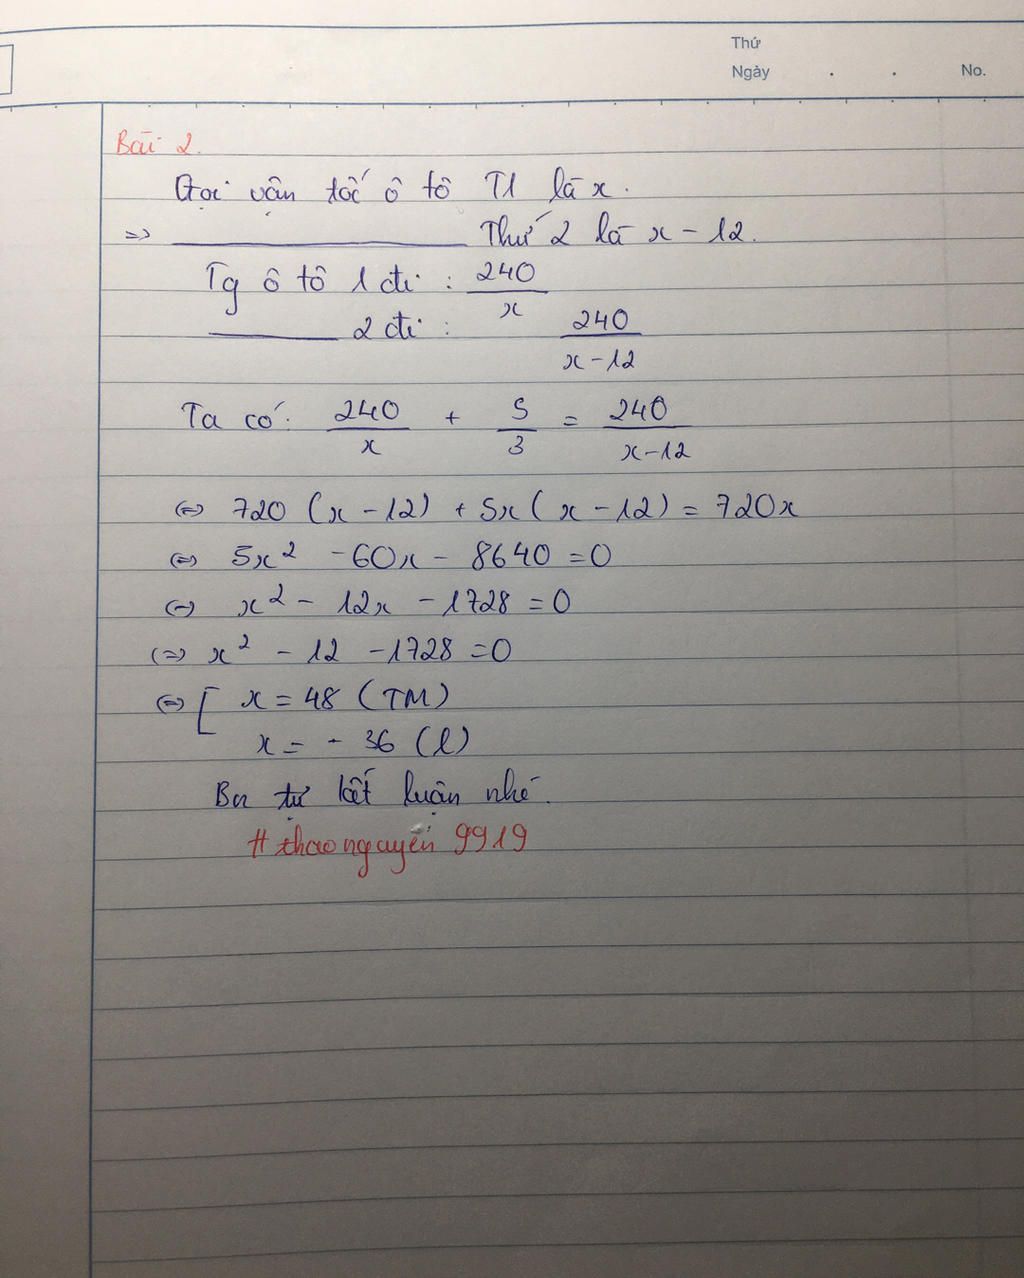 Thứ
Ngày . . No.
Bài 2.
Gọi vận tốc ô tô T1 là x.
=> ________ Thứ 2 là x - 12.
Tg ô tô 1 đi : 240/x
________ 2 đi : 240/(x-12)
Ta có: 240/x + 5/3 = 240/(x-12)
<=> 720 (x - 12) + 5x (x - 12) = 720x
<=> 5x² - 60x - 8640 = 0
<=> x² - 12x - 1728 = 0
<=> x² - 12 - 1728 = 0
<=> [ x = 48 (TM)
x = - 36 (l)
Bn tự kết luận nhé.
# thaonguyên 9919